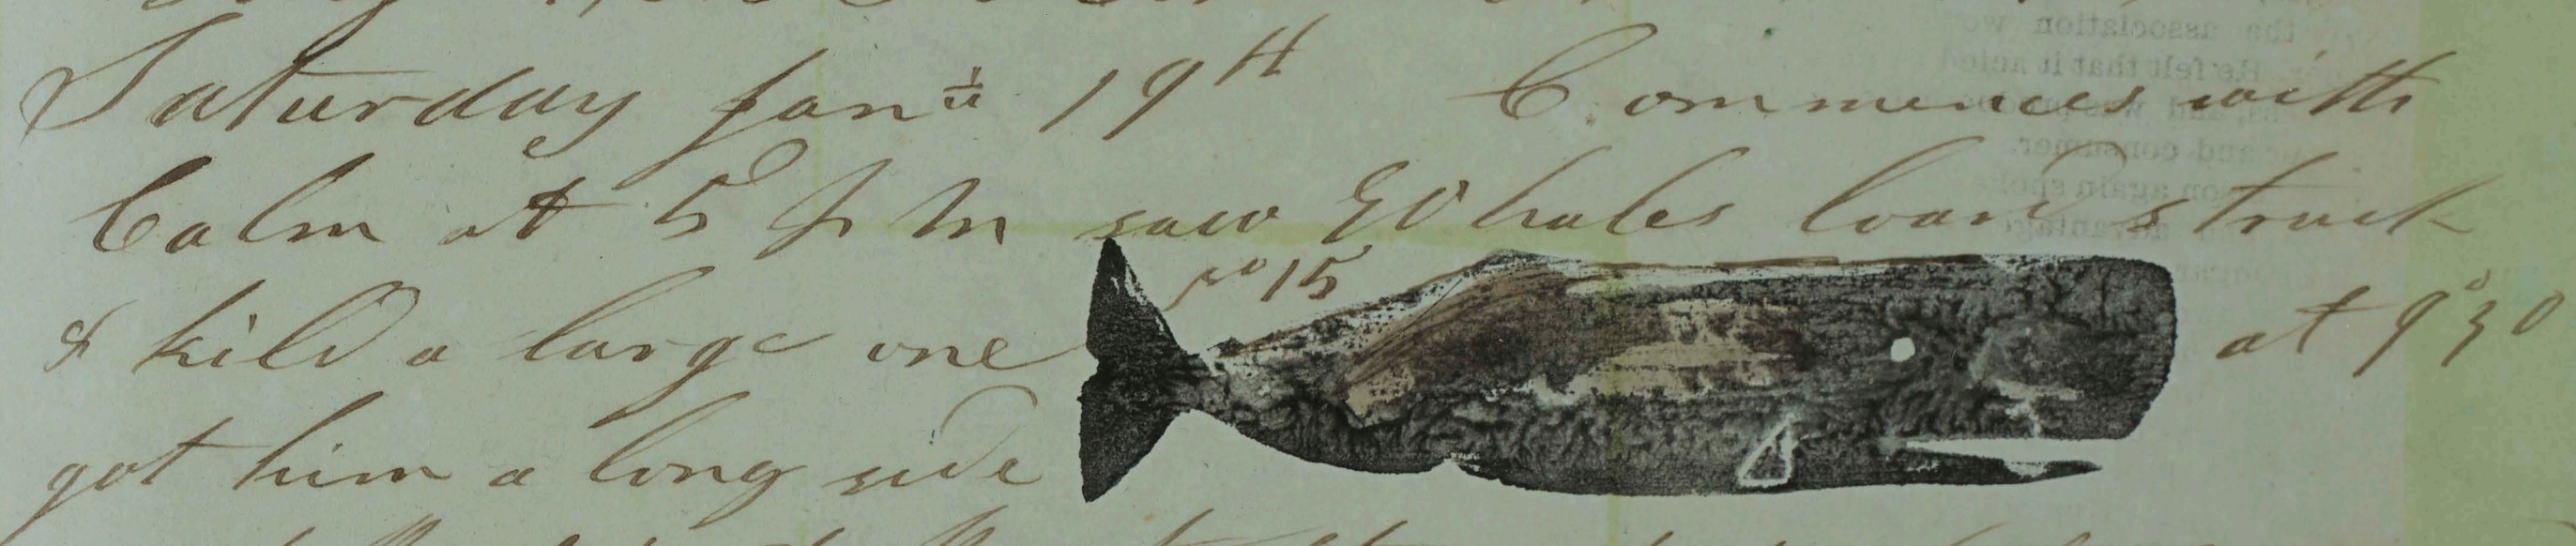 Saturday Jan 19th Commences with
Calm at 5 P M saw Whales loard struck
No 15
& kild a large one at 9"30
got him a long side